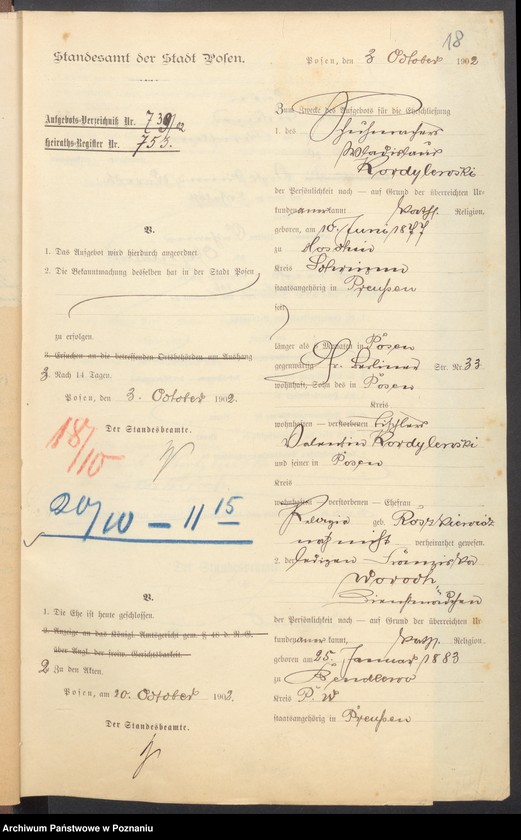 18
Standesamt der Stadt Posen.
Posen, den 3 October 1902
Aufgebots-Verzeichniß Nr. 739/02
Heiraths-Register Nr. 753.
V.
1. Das Aufgebot wird hierdurch angeordnet
2. Die Bekanntmachung desselben hat in der Stadt Posen
zu erfolgen.
3. Ersuchen an die betreffenden Ortsbehörden um Aushang
3. Nach 14 Tagen.
Posen, den 3. October 1902.
Der Standesbeamte.
18/10
20/10 – 11 15
V.
1. Die Ehe ist heute geschlossen.
2. Anzeige an das Königl. Amtsgericht gem. § 48 d. R.-G.
über Angl. der freiw. Gerichtsbarkeit.
2 Zu den Akten.
Posen, am 20. October 1902.
Der Standesbeamte.
Zum Zwecke des Aufgebots für die Eheschließung
1. des Schuhmacher
Wladislaus
Kordylewski
der Persönlichkeit nach – auf Grund der überreichten Ur-
kunden anerkannt kath. Religion.
geboren, am 10. Juni 1877
zu Moschin
Kreis Schrimm
staatsangehörig in Preußen
seit
länger als 6 Monaten in Posen
gegenwärtig Gr. Berliner Str. Nr. 33
wohnhaft, Sohn des in Posen
Kreis
wohnhaften – verstorbenen Tischlers
Valentin Kordylewski
und seiner in Posen
Kreis
wohnhaften – verstorbenen – Ehefrau
Pelagia geb. Roszkiewicz
noch nicht verheirathet gewesen.
2. der ledigen Franziska
Woroch,
Dienstmädchen
der Persönlichkeit nach – auf Grund der überreichten Ur-
kunden anerkannt, kath. Religion.
geboren am 25. Januar 1883
zu Bendlewo
Kreis P. W
staatsangehörig in Preußen
Archiwum Państwowe w Poznaniu